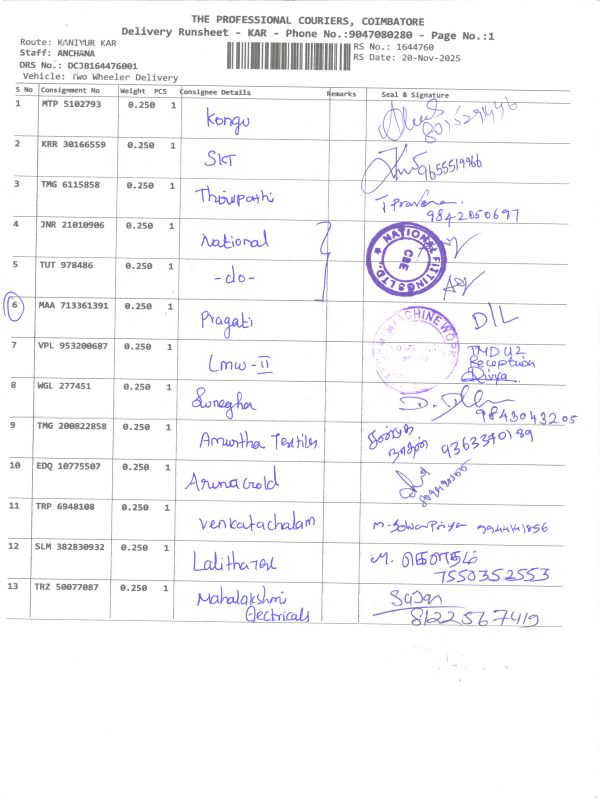 THE PROFESSIONAL COURIERS, COIMBATORE
Delivery Runsheet - KAR - Phone No.:9047080280 - Page No.:1
Route: KANIYUR KAR
RS No.: 1644760
Staff: ANCHANA
RS Date: 20-Nov-2025
DRS No.: DCJB164476001
Vehicle: Two Wheeler Delivery
S No Consignment No Weight PCS Consignee Details Remarks Seal & Signature
1 MTP 5102793 0.250 1 Kongu
2 KRR 30166559 0.250 1 SKT 9655519966
3 TMG 6115858 0.250 1 Thirupathi T Praveena
9842050697
4 JNR 21010906 0.250 1 National NATIONAL FITTINGS LTD. CBE
5 TUT 978486 0.250 1 -do-
6 MAA 713361391 0.250 1 Pragati D/L
7 VPL 953200687 0.250 1 Lmw-II TMD U2
Reception
Divya
8 WGL 277451 0.250 1
9843043205
9 TMG 200822858 0.250 1 Amurtha Textiles 9363340189
10 EDQ 10775507 0.250 1 Aruna Gold
11 TRP 6948108 0.250 1 Venkatachalam 9944441856
12 SLM 382830932 0.250 1 Lalitha Tex M. கௌதம்
7550352553
13 TRZ 50077087 0.250 1 Mahalakshmi
Electricals
8122567419